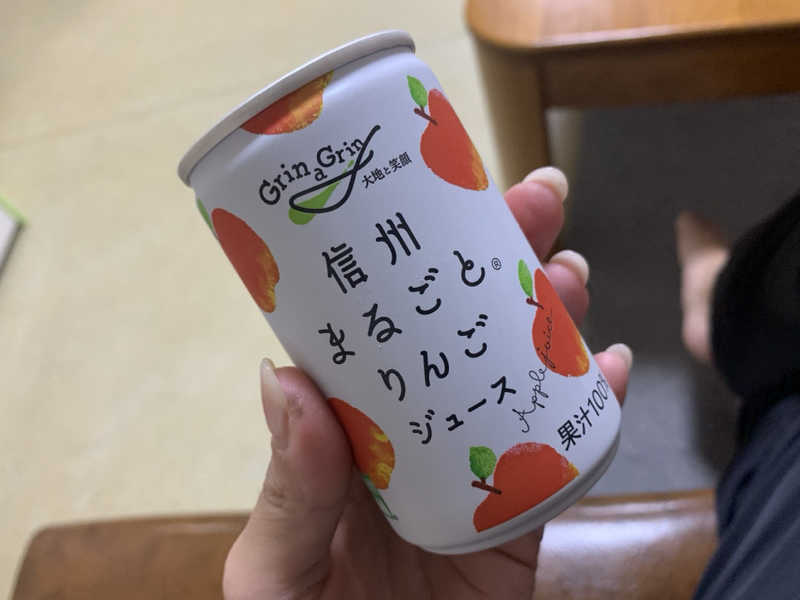 Grin a Grin
大地と笑顔
信州
まるごと®
りんご
ジュース
Apple juice
果汁100%